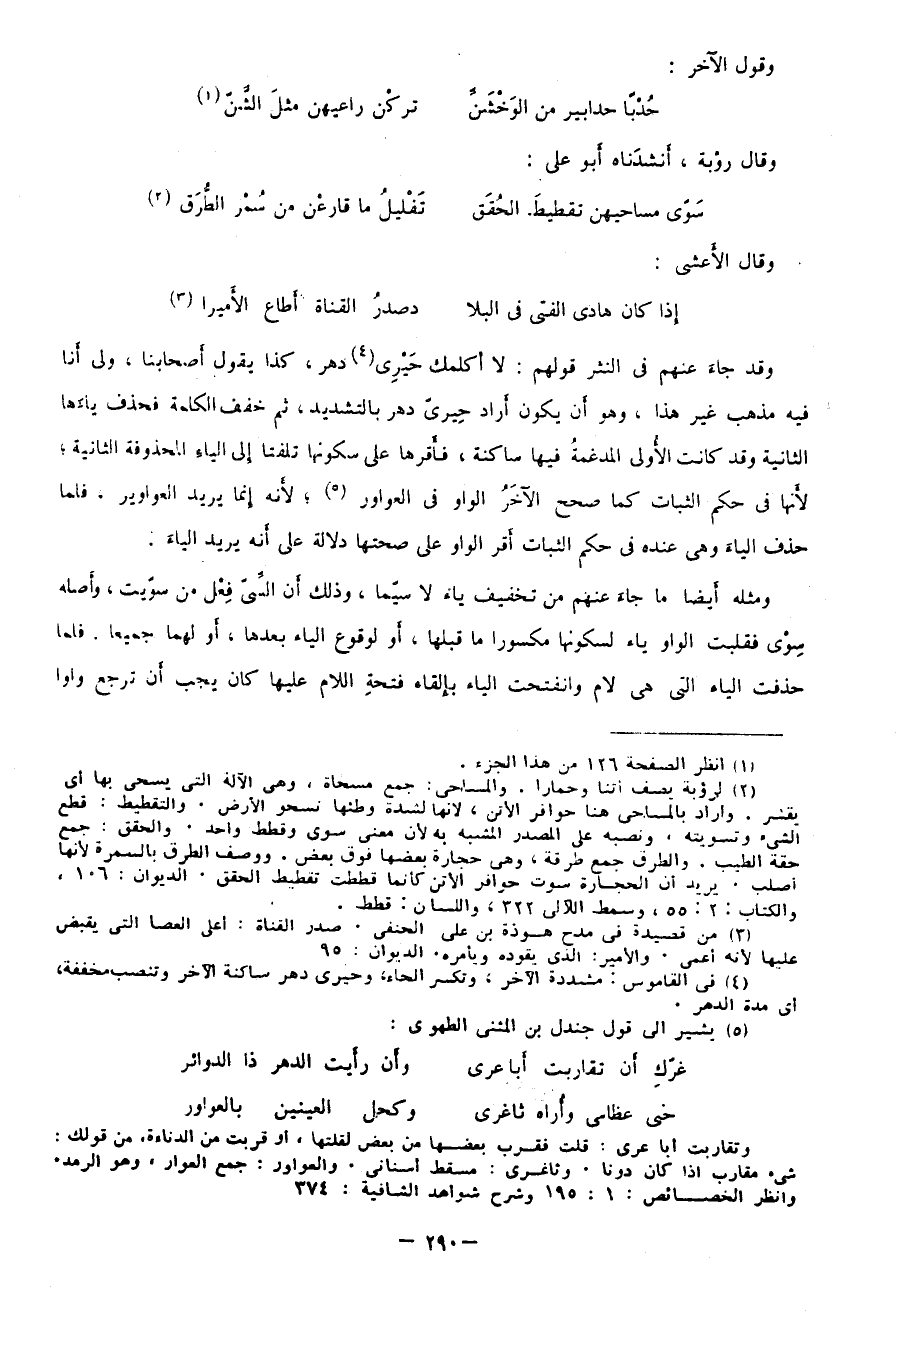 وقول الآخر :
حُدْبًا حدابير من الوَخْشَنَّ تركْن راعيهن مثلَ الشَّنّ (١)
وقال رؤبة ، أنشدَناه أبو على :
سَوّى مساحيهن تقطيطَ. الحُقَق تَفْليلُ ما قارعْن من سُمْر الطُّرَق (٢)
وقال الأَعشى :
إذا كان هادى الفتى فى البلا دصدرُ القناة أَطاع الأَميرا (٣)
وقد جاءَ عنهم فى النثر قولهم : لا أكلمك حَيْرِى(٤) دهر ، كذا يقول أَصحابنا ، ولى أَنا
فيه مذهب غير هذا ، وهو أَن يكون أَراد حِيرىّ دهر بالتشديد ، ثم خفف الكلمة فحذف ياءَها
الثانية وقد كانت الأُولى المدغمةُ فيها ساكنة ، فأَقرها على سكونها تلفتا إلى الياءِ المحذوفة الثانية ؛
لأَنها فى حكم الثبات كما صحح الآخَرُ الواو فى العواور (٥) ؛ لأَنه إنما يريد العواوير . فلما
حذف الياءَ وهى عنده فى حكم الثبات أقر الواو على صحتها دلالة على أنه يريد الياءَ .
ومثله أيضا ما جاءَ عنهم من تخفيف ياء لا سيّما ، وذلك أَن السِّىّ فِعْل من سوّيت ، وأَصله
سِوْى فقلبت الواو ياء لسكونها مكسورا ما قبلها ، أَو لوقوع الياءِ بعدها ، أَو لهما جميعا . فلما
حذفت الياء التى هى لام وانفتحت الياء بإلقاء فتحةِ اللام عليها كان يجب أَن ترجع واوا
(١) انظر الصفحة ١٢٦ من هذا الجزء .
(٢) لرؤبة يصف أتنا وحمارا . والمساحى : جمع مسحاة ، وهى الآلة التى يسحى بها أى
يقشر . وأراد بالمساحى هنا حوافر الأتن ، لأنها لشدة وطئها نسحو الأرض . والتقطيط : قطع
الشىء وتسويته ، ونصبه على المصدر المشبه به لأن معنى سوى وقطط واحد . والحقق : جمع
حقة الطيب . والطرق جمع طرقة ، وهى حجارة بعضها فوق بعض . ووصف الطرق بالسمرة لأنها
أصلب . يريد أن الحجارة سوت حوافر الأتن كأنما قططت تقطيط الحقق . الديوان : ١٠٦ ،
والكتاب : ٢ : ٥٥ ، وسمط اللآلى ٣٢٢ ، واللسان : قطط .
(٣) من قصيدة فى مدح هوذة بن على الحنفى . صدر القناة : أعلى العصا التى يقبض
عليها لأنه أعمى . والأمير: الذى يقوده ويأمره. الديوان : ٩٥
(٤) فى القاموس : مشددة الآخر ، وتكسر الحاء، وحيرى دهر ساكنة الآخر وتنصب مخففة،
أى مدة الدهر .
(٥) يشير الى قول جندل بن المثنى الطهوى :
غرّكِ أن تقاربت أباعرى وأن رأيت الدهر ذا الدوائر
حنى عظامى وأراه ثاغرى وكحل العينين بالعواور
وتقاربت أباعرى : قلت فقرب بعضها من بعض لقلتها ، أو قربت من الدناءة، من قولك :
شىء مقارب اذا كان دونا . وثاغرى : مسقط أسنانى . والعواور : جمع العوار ، وهو الرمد.
وانظر الخصائص : ١ : ١٩٥ وشرح شواهد الشافية : ٣٧٤
— ٢٩٠ —